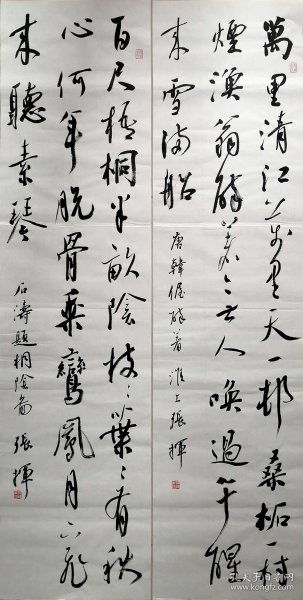 萬里清江万里天一邨桑柘一村
煙漁翁醉着无人喚過午醒
来雪滿船
唐韓偓醉着 淮上張揮
百尺梧桐半畝陰枝〻葉〻有秋
心何年脫骨乘鸞鳳月下飛
来聽素琴
石濤題桐陰圖 張揮